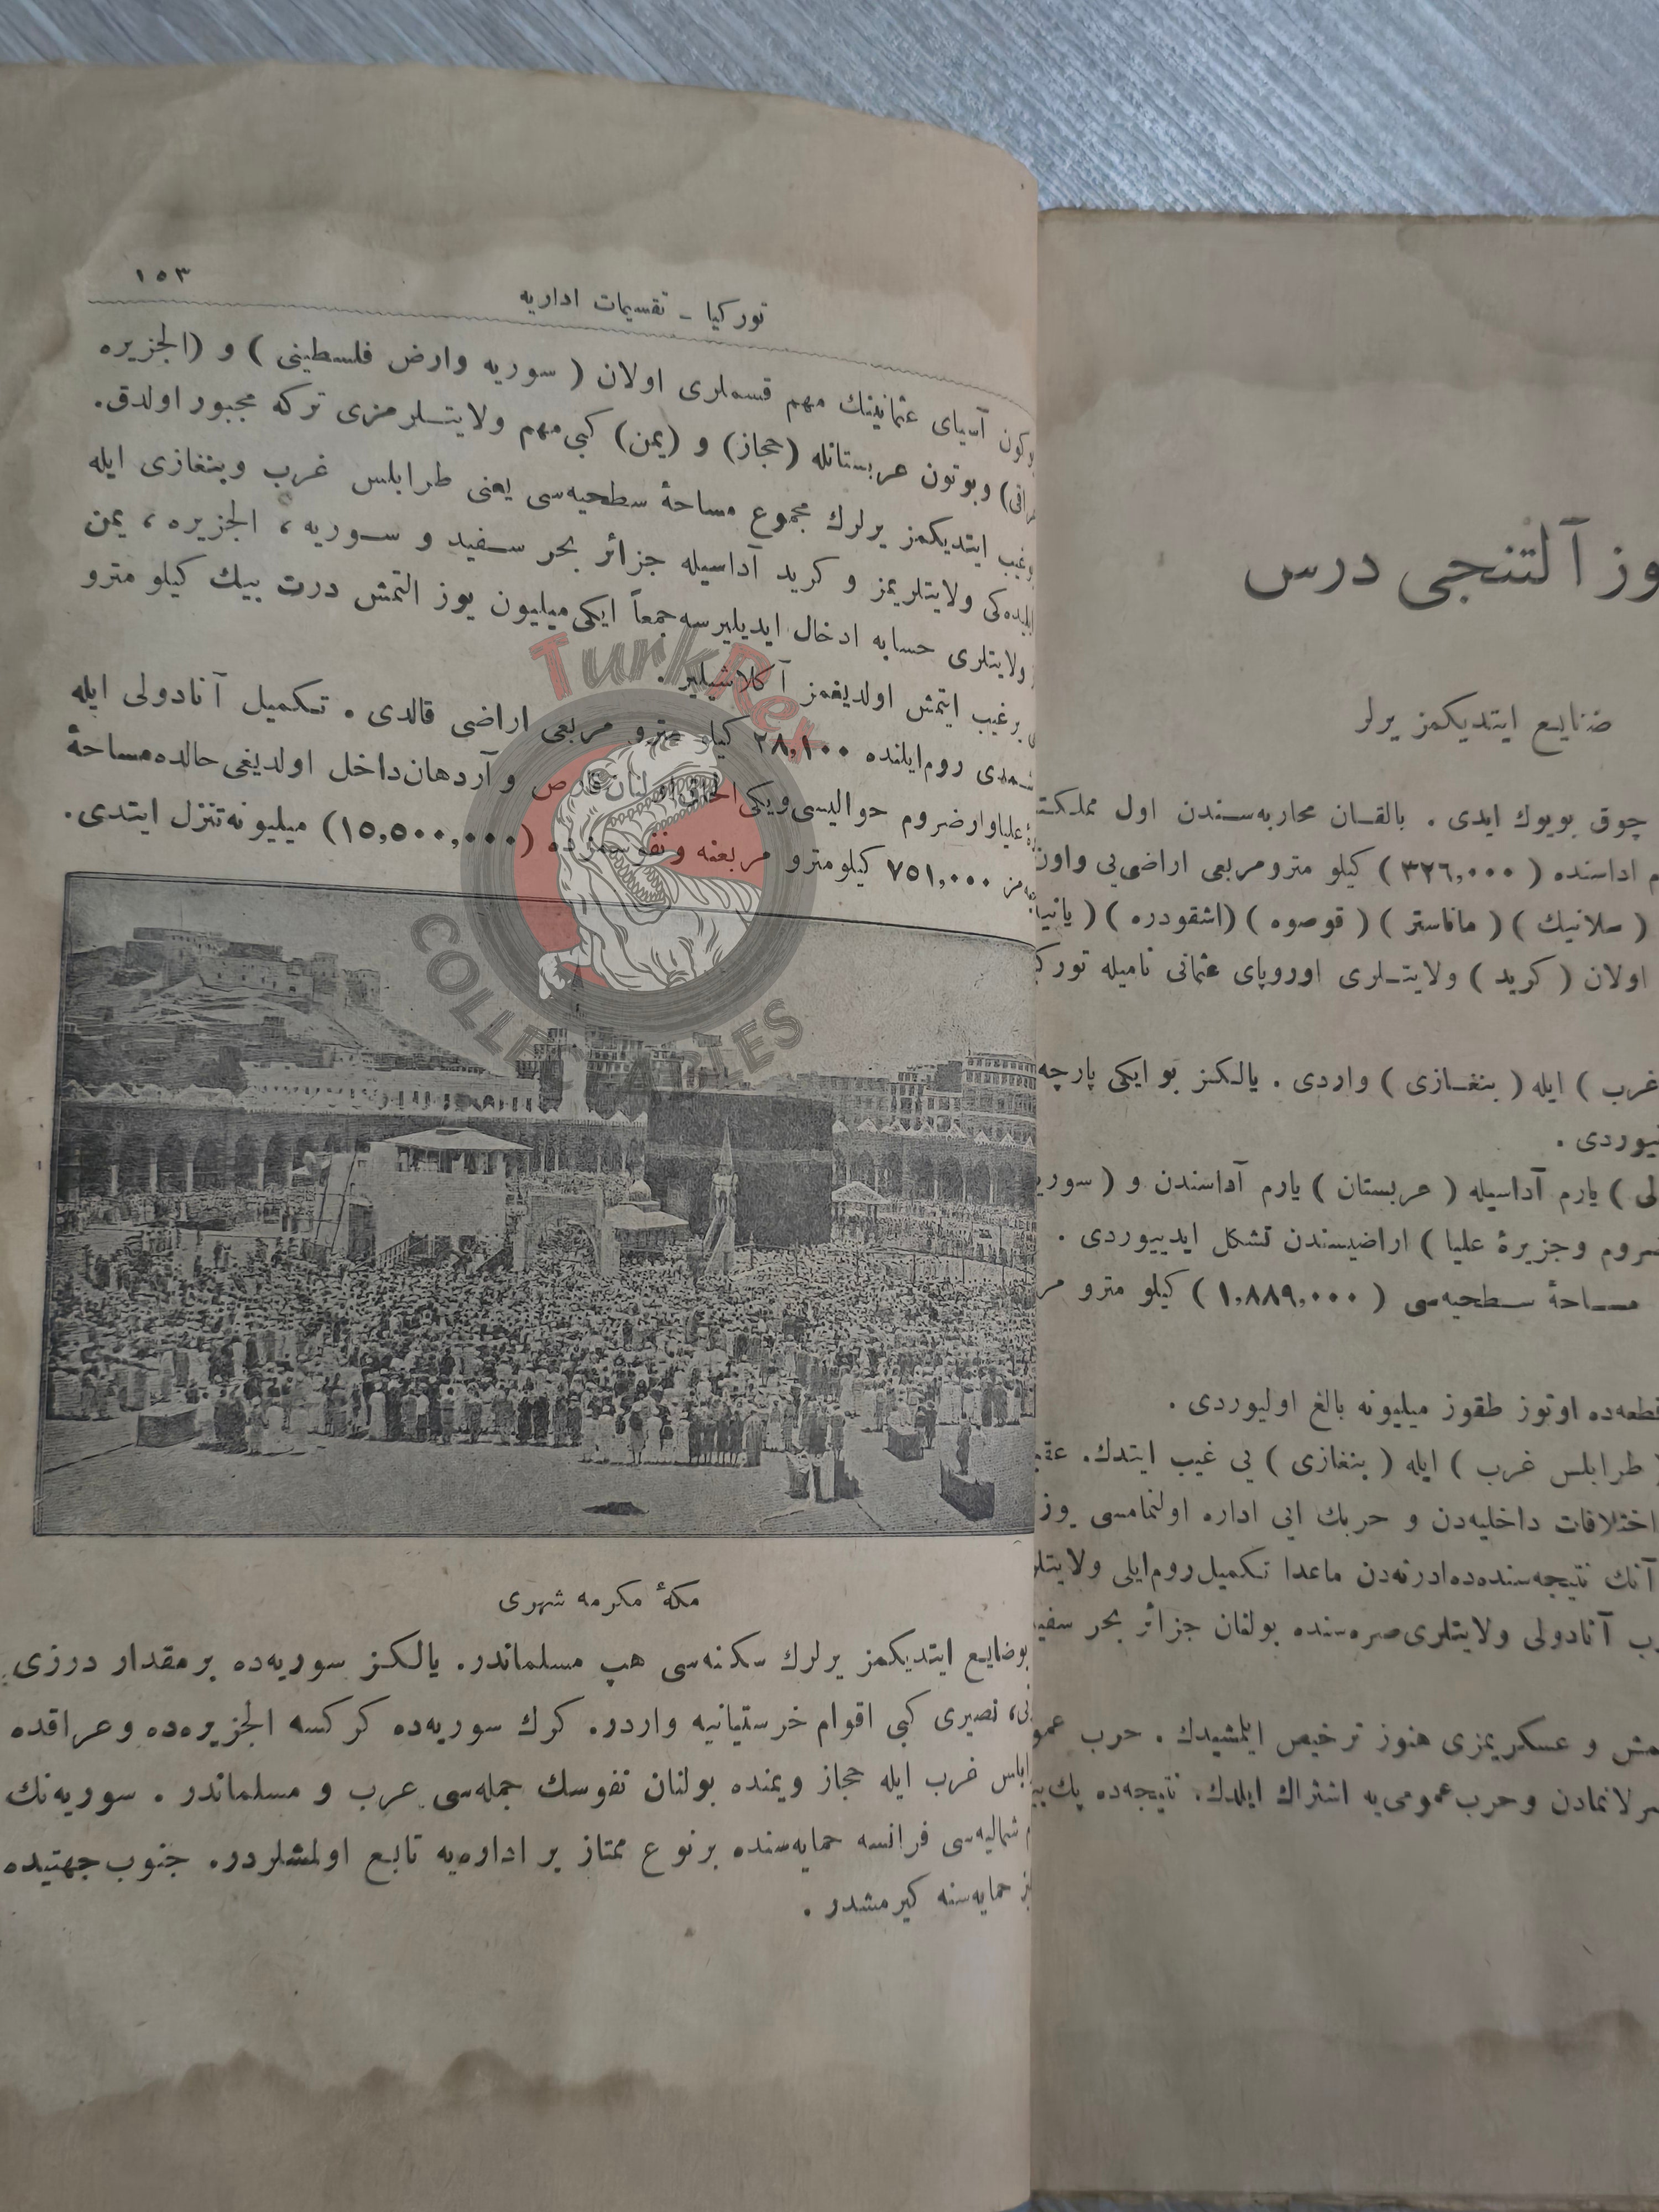 ١٥٣
توركيا - تقسيمات اداريه
آسياى عثمانينك مهم قسملرى اولان ( سوريه وارض فلسطينى ) و (الجزيره
وبوتون عربستانله (حجاز) و (يمن) كبى مهم ولايتلرمزى تركه مجبور اولدق.
غيب ايتديكمز يرلرك مجموع مساحۀ سطحيه‌سى يعنى طرابلس غرب وبنغازى ايله
ولايتلريمز و كريد آداسيله جزائر بحر سفيد و سوريه ، الجزيره ، يمن
ولايتلرى حسابه ادخال ايديليرسه جمعاً ايكى ميليون يوز التمش درت بيك كيلو مترو
ير غيب ايتمش اولديغمز آكلاشيلير .
شمدى روم‌ايلنده ٢٨,١٠٠ كيلو مترو مربعى اراضى قالدى . تكميل آنادولى ايله
عليا وارضروم حواليسى ويكى الحاق اولنان قارص و آردهان داخل اولديغى حالده مساحۀ
٧٥١,٠٠٠ كيلو مترو مربعنه ونفوسمزده (١٥,٥٠٠,٠٠٠) ميليونه تنزل ايتدى.
مكۀ مكرمه شهرى
بو ضايع ايتديكمز يرلرك سكنه‌سى هپ مسلماندر. يالكز سوريه‌ده بر مقدار درزى
نصيرى كبى اقوام خرستيانيه واردر. كرك سوريه‌ده كركسه الجزيره‌ده وعراقده
غرب ايله حجاز ويمنده بولنان نفوسك جمله‌سى عرب و مسلماندر . سوريه‌نك
شماليه‌سى فرانسه حمايه‌سنده بر نوع ممتاز بر اداره‌يه تابع اولمشلردر. جنوب جهتيده
حمايه‌سنه كيرمشدر .
آلتنجى درس
ضايع ايتديكمز يرلر
چوق بويوك ايدى . بالقان محاربه‌سندن اول
اداسنده ( ٣٢٦,٠٠٠ ) كيلو مترو مربعى اراضى‌يى
( سلانيك ) ( مناستر ) ( قوصوه ) (اشقودره )
اولان ( كريد ) ولايتلرى اوروپاى عثمانى ناميله
غرب ) ايله ( بنغازى ) واردى . يالكز بو ايكى پارچه
يارم آداسيله ( عربستان ) يارم آداسندن و
وجزيرۀ عليا ) اراضيسندن تشكل ايدييوردى .
مساحۀ سطحيه‌سى ( ١,٨٨٩,٠٠٠ ) كيلو مترو
قطعه‌ده اوتوز طقوز ميليونه بالغ اوليوردى .
طرابلس غرب ) ايله ( بنغازى ) يى غيب ايتدك.
اختلافات داخليه‌دن و حربك ايى اداره اولنمامسى
آنك نتيجه‌سنده‌ده ادرنه‌دن ماعدا تكميل روم‌ايلى
آنادولى ولايتلرى صره‌سنده بولنان جزائر بحر
و عسكريمزى هنوز ترخيص ايلمشيدك . حرب
وحرب عمومى‌يه اشتراك ايلدك. نتيجه‌ده پك
TurkRex
COLLECTABLES